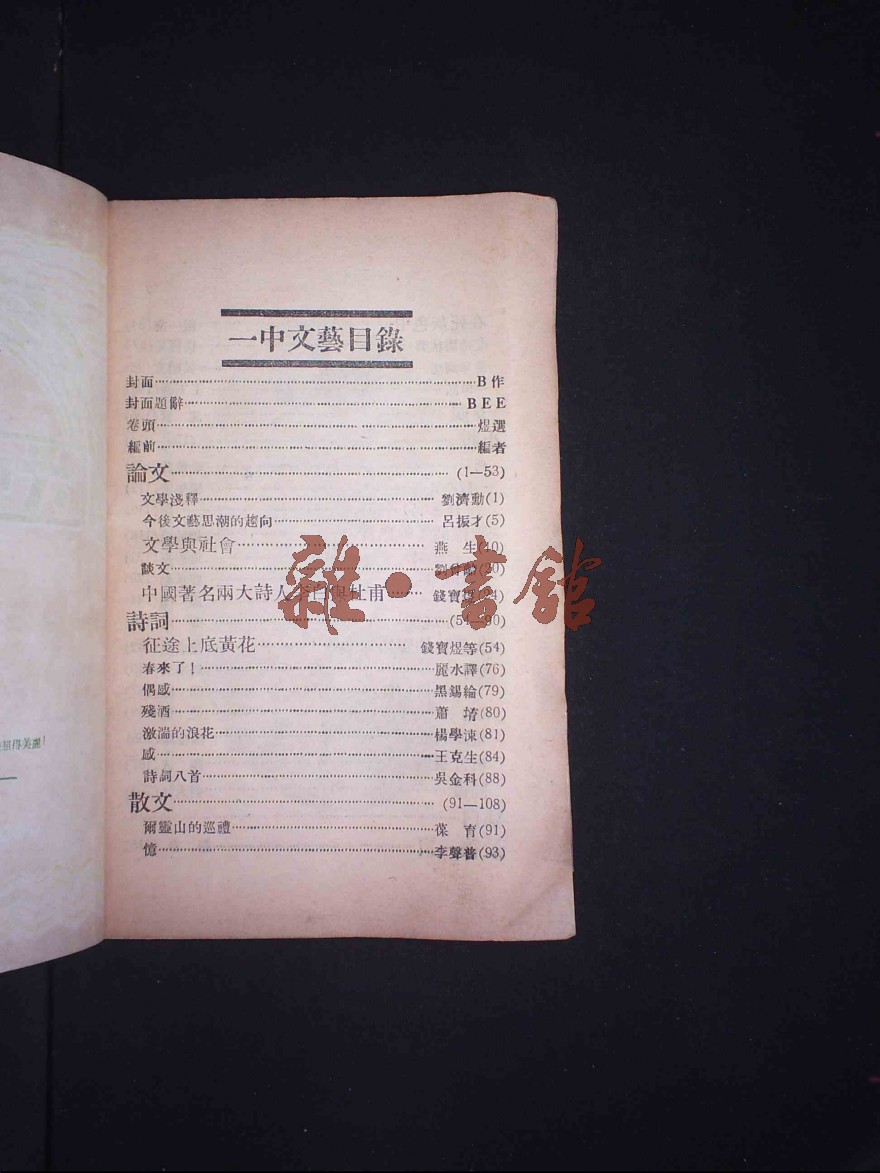 一中文藝目錄
封面 B作
封面題辭 BEE
卷頭 煜選
編前 編者
論文 (1—53)
文學淺釋 劉濟勳(1)
今後文藝思潮的趨向 呂振才(5)
文學與社會 燕 生(10)
談文 (20)
中國著名兩大詩人李白與杜甫 錢寶煜(24)
詩詞 (54—90)
征途上底黃花 錢寶煜等(54)
春來了! 麗水譯(76)
偶感 黑錫綸(79)
殘酒 蕭 堉(80)
激湍的浪花 楊學涑(81)
感 王克生(84)
詩詞八首 吳金科(88)
散文 (91—108)
爾靈山的巡禮 葆 育(91)
憶 李聲普(93)
得美麗!
雜·書館